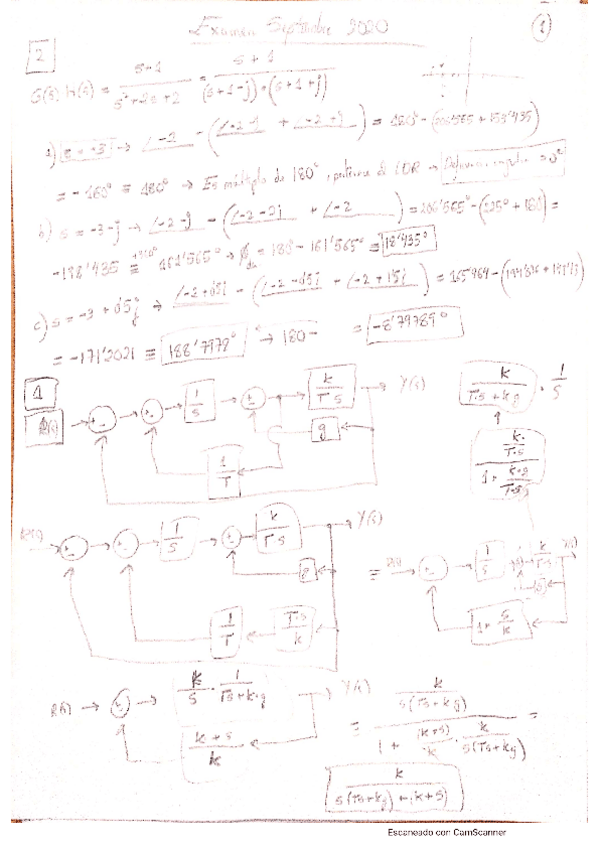 Examen Septiembre 2020
1
2
G(s)·h(s) = s+1 / s²+2s+2 = s+1 / (s+1-j)·(s+1+j)
a) s=-3 → ∠-2 - (∠-2-j + ∠-2+j) = 180° - (206'565 + 153'435)
= -180° ≡ 180° → Es múltiplo de 180°, pertenece al LDR → = 0°
b) s = -3-j → ∠-2-j - (∠-2-2j + ∠-2) = 206'565° - (225° + 180) =
-198'435 ≡ 161'565° → = 180 - 161'565° ≡ 18'435°
c) s = -3 + 0'5j → ∠-2+0'5j - (∠-2-0'5j + ∠-2+1'5j) = 165'964 -
= -171'2021 ≡ 188'7979° → 180 - = -8'79789°
1
R(s) 1/s k/T·s Y(s)
g
1/T
k/T·s+kg · 1/s
k/T·s / 1+ k·g/T·s
R(s) 1/s k/T·s Y(s)
g
1/T T·s/k
≡ R(s) 1/s k/T·s Y(s)
1+ s/k
R(s) → k/s · 1/Ts+k·g Y(s)
k+s/k
= k/s(Ts+kg) / 1 + (k+s)/k · k/s(Ts+kg) =
k / s(Ts+kg)+(k+s)
Escaneado con CamScanner